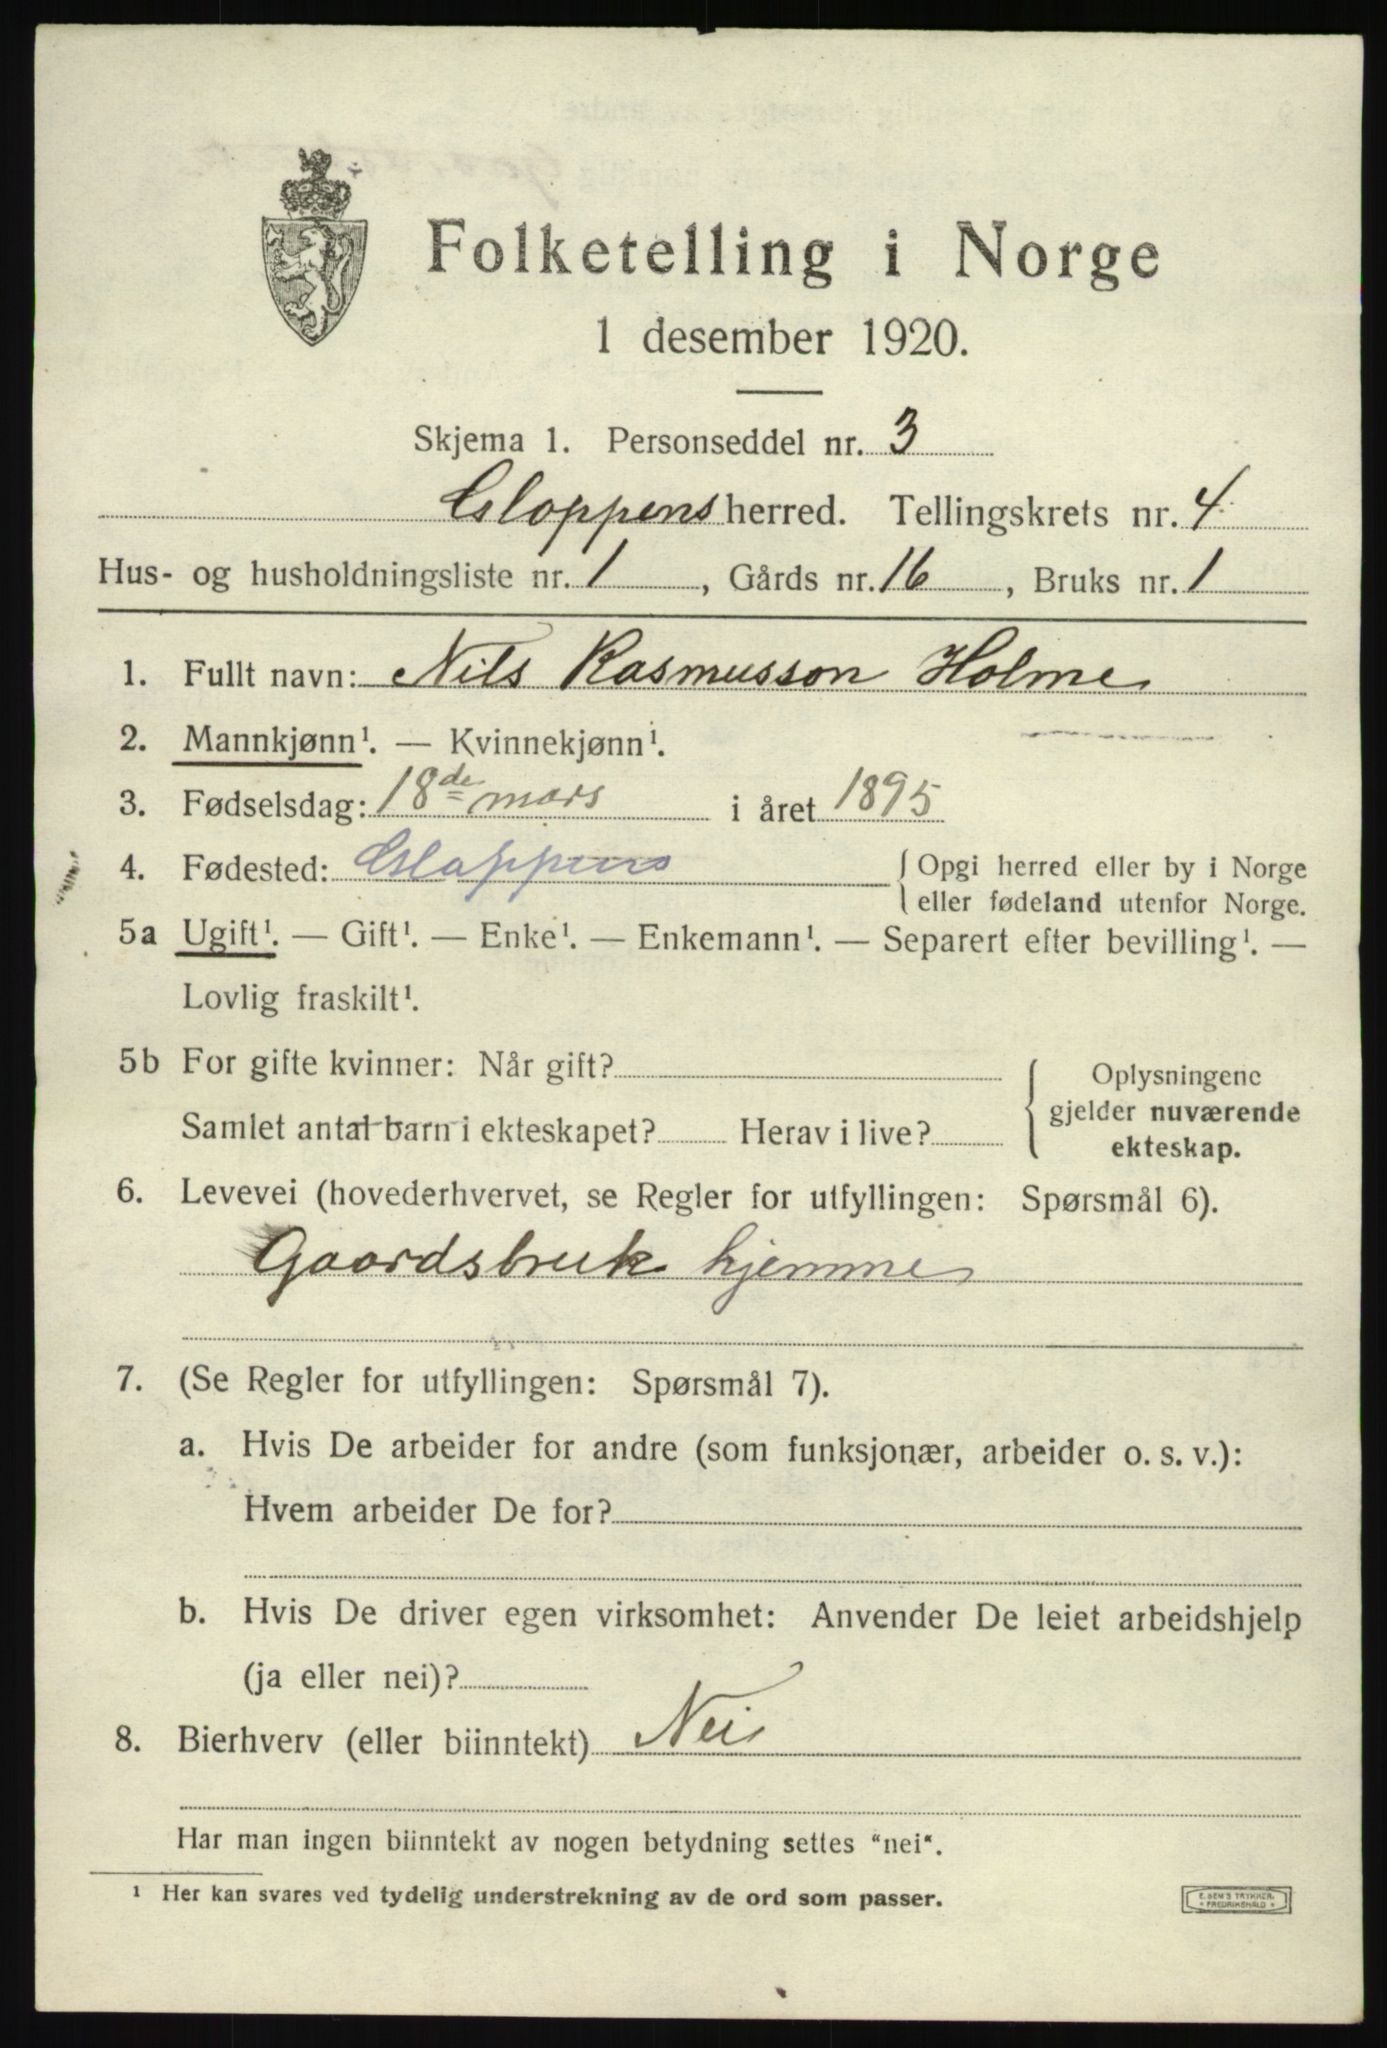 Folketelling i Norge
1 desember 1920.
Skjema 1. Personseddel nr. 3
Gloppens herred. Tellingskrets nr. 4
Hus- og husholdningsliste nr. 1, Gårds nr. 16, Bruks nr. 1
1. Fullt navn: Nils Rasmusson Holme
2. Mannkjønn¹. — Kvinnekjønn¹.
3. Fødselsdag: 18de mars i året 1895
4. Fødested: Gloppens { Opgi herred eller by i Norge
eller fødeland utenfor Norge.
5a Ugift¹. — Gift¹. — Enke¹. — Enkemann¹. — Separert efter bevilling¹. —
Lovlig fraskilt¹.
5b For gifte kvinner: Når gift? { Oplysningene
gjelder nuværende
Samlet antal barn i ekteskapet? Herav i live?
ekteskap.
6. Levevei (hovederhvervet, se Regler for utfyllingen: Spørsmål 6).
Gaardsbruk hjemme
7. (Se Regler for utfyllingen: Spørsmål 7).
a. Hvis De arbeider for andre (som funksjonær, arbeider o. s. v.):
Hvem arbeider De for?
b. Hvis De driver egen virksomhet: Anvender De leiet arbeidshjelp
(ja eller nei)?
8. Bierhverv (eller biinntekt) Nei
Har man ingen biinntekt av nogen betydning settes "nei".
¹ Her kan svares ved tydelig understrekning av de ord som passer.
E. SEM'S TRYKKERI
FREDRIKSHALD